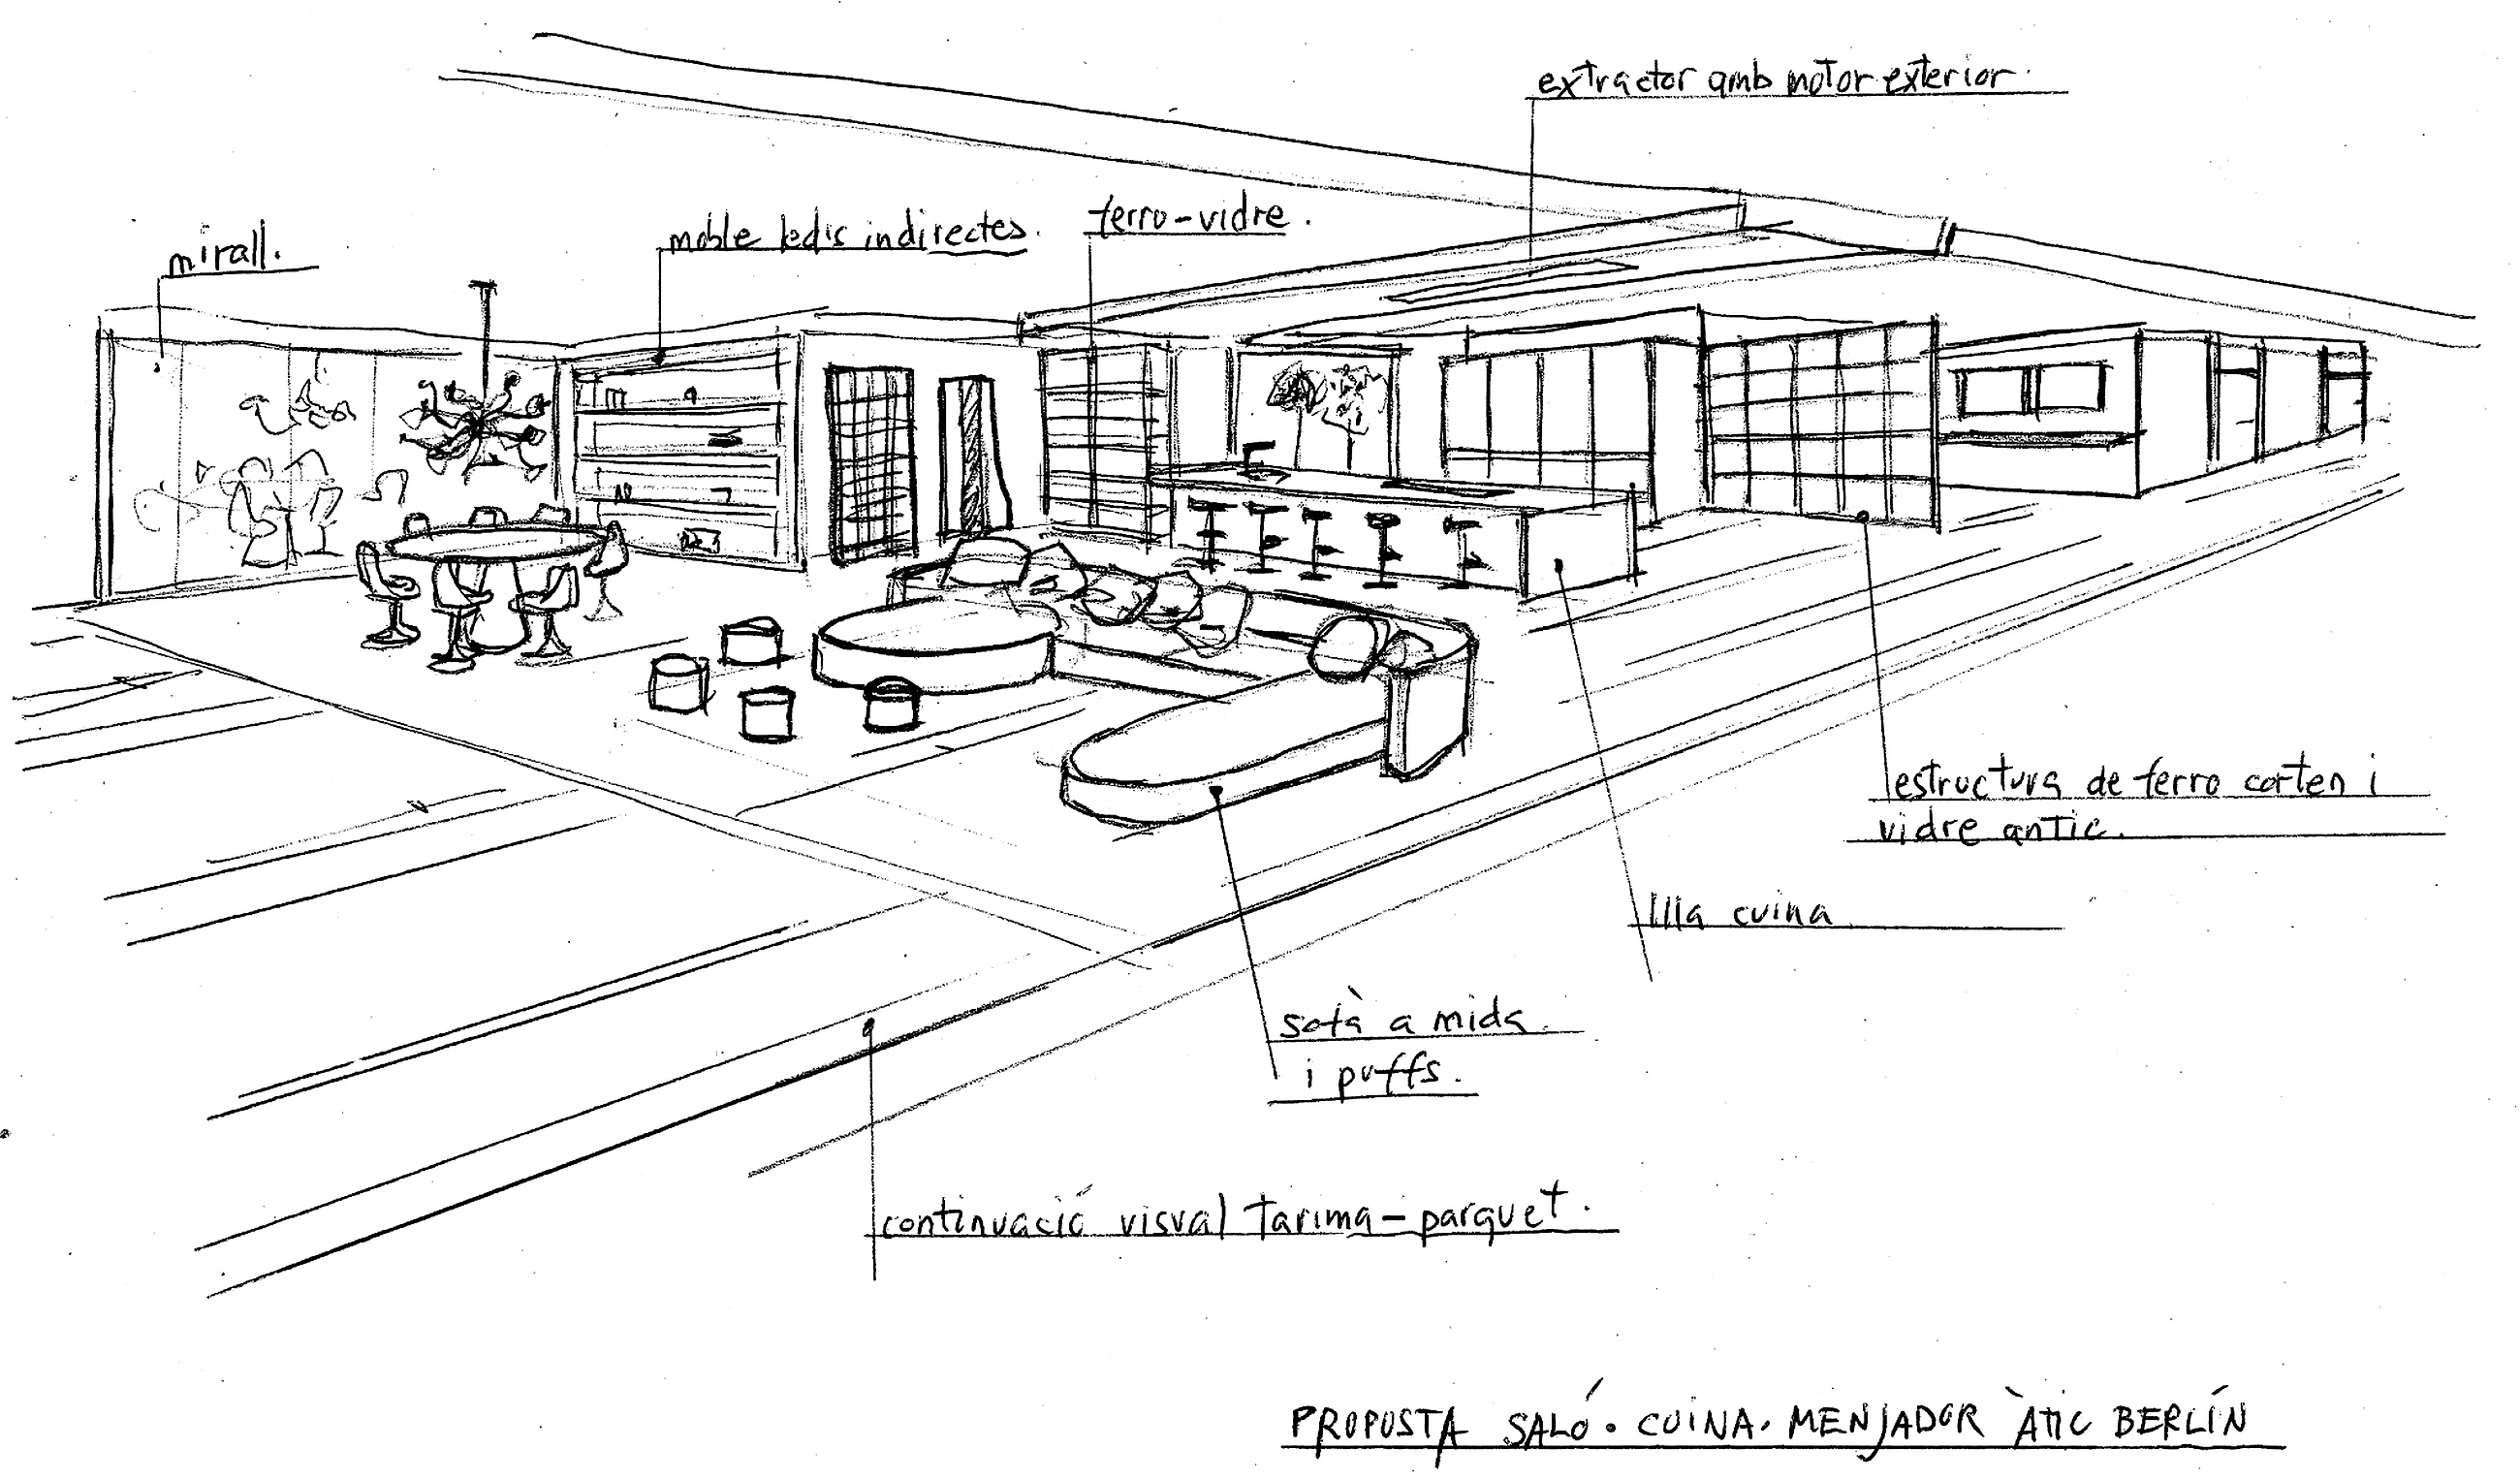 extractor amb motor exterior.
mirall.
moble led's indirectes.
ferro-vidre.
estructura de ferro corten i
vidre antic.
illa cuina
sofà a mida
i puffs.
continuació visual tarima-parquet.
PROPOSTA SALÓ. CUINA. MENJADOR ÀTIC BERLÍN